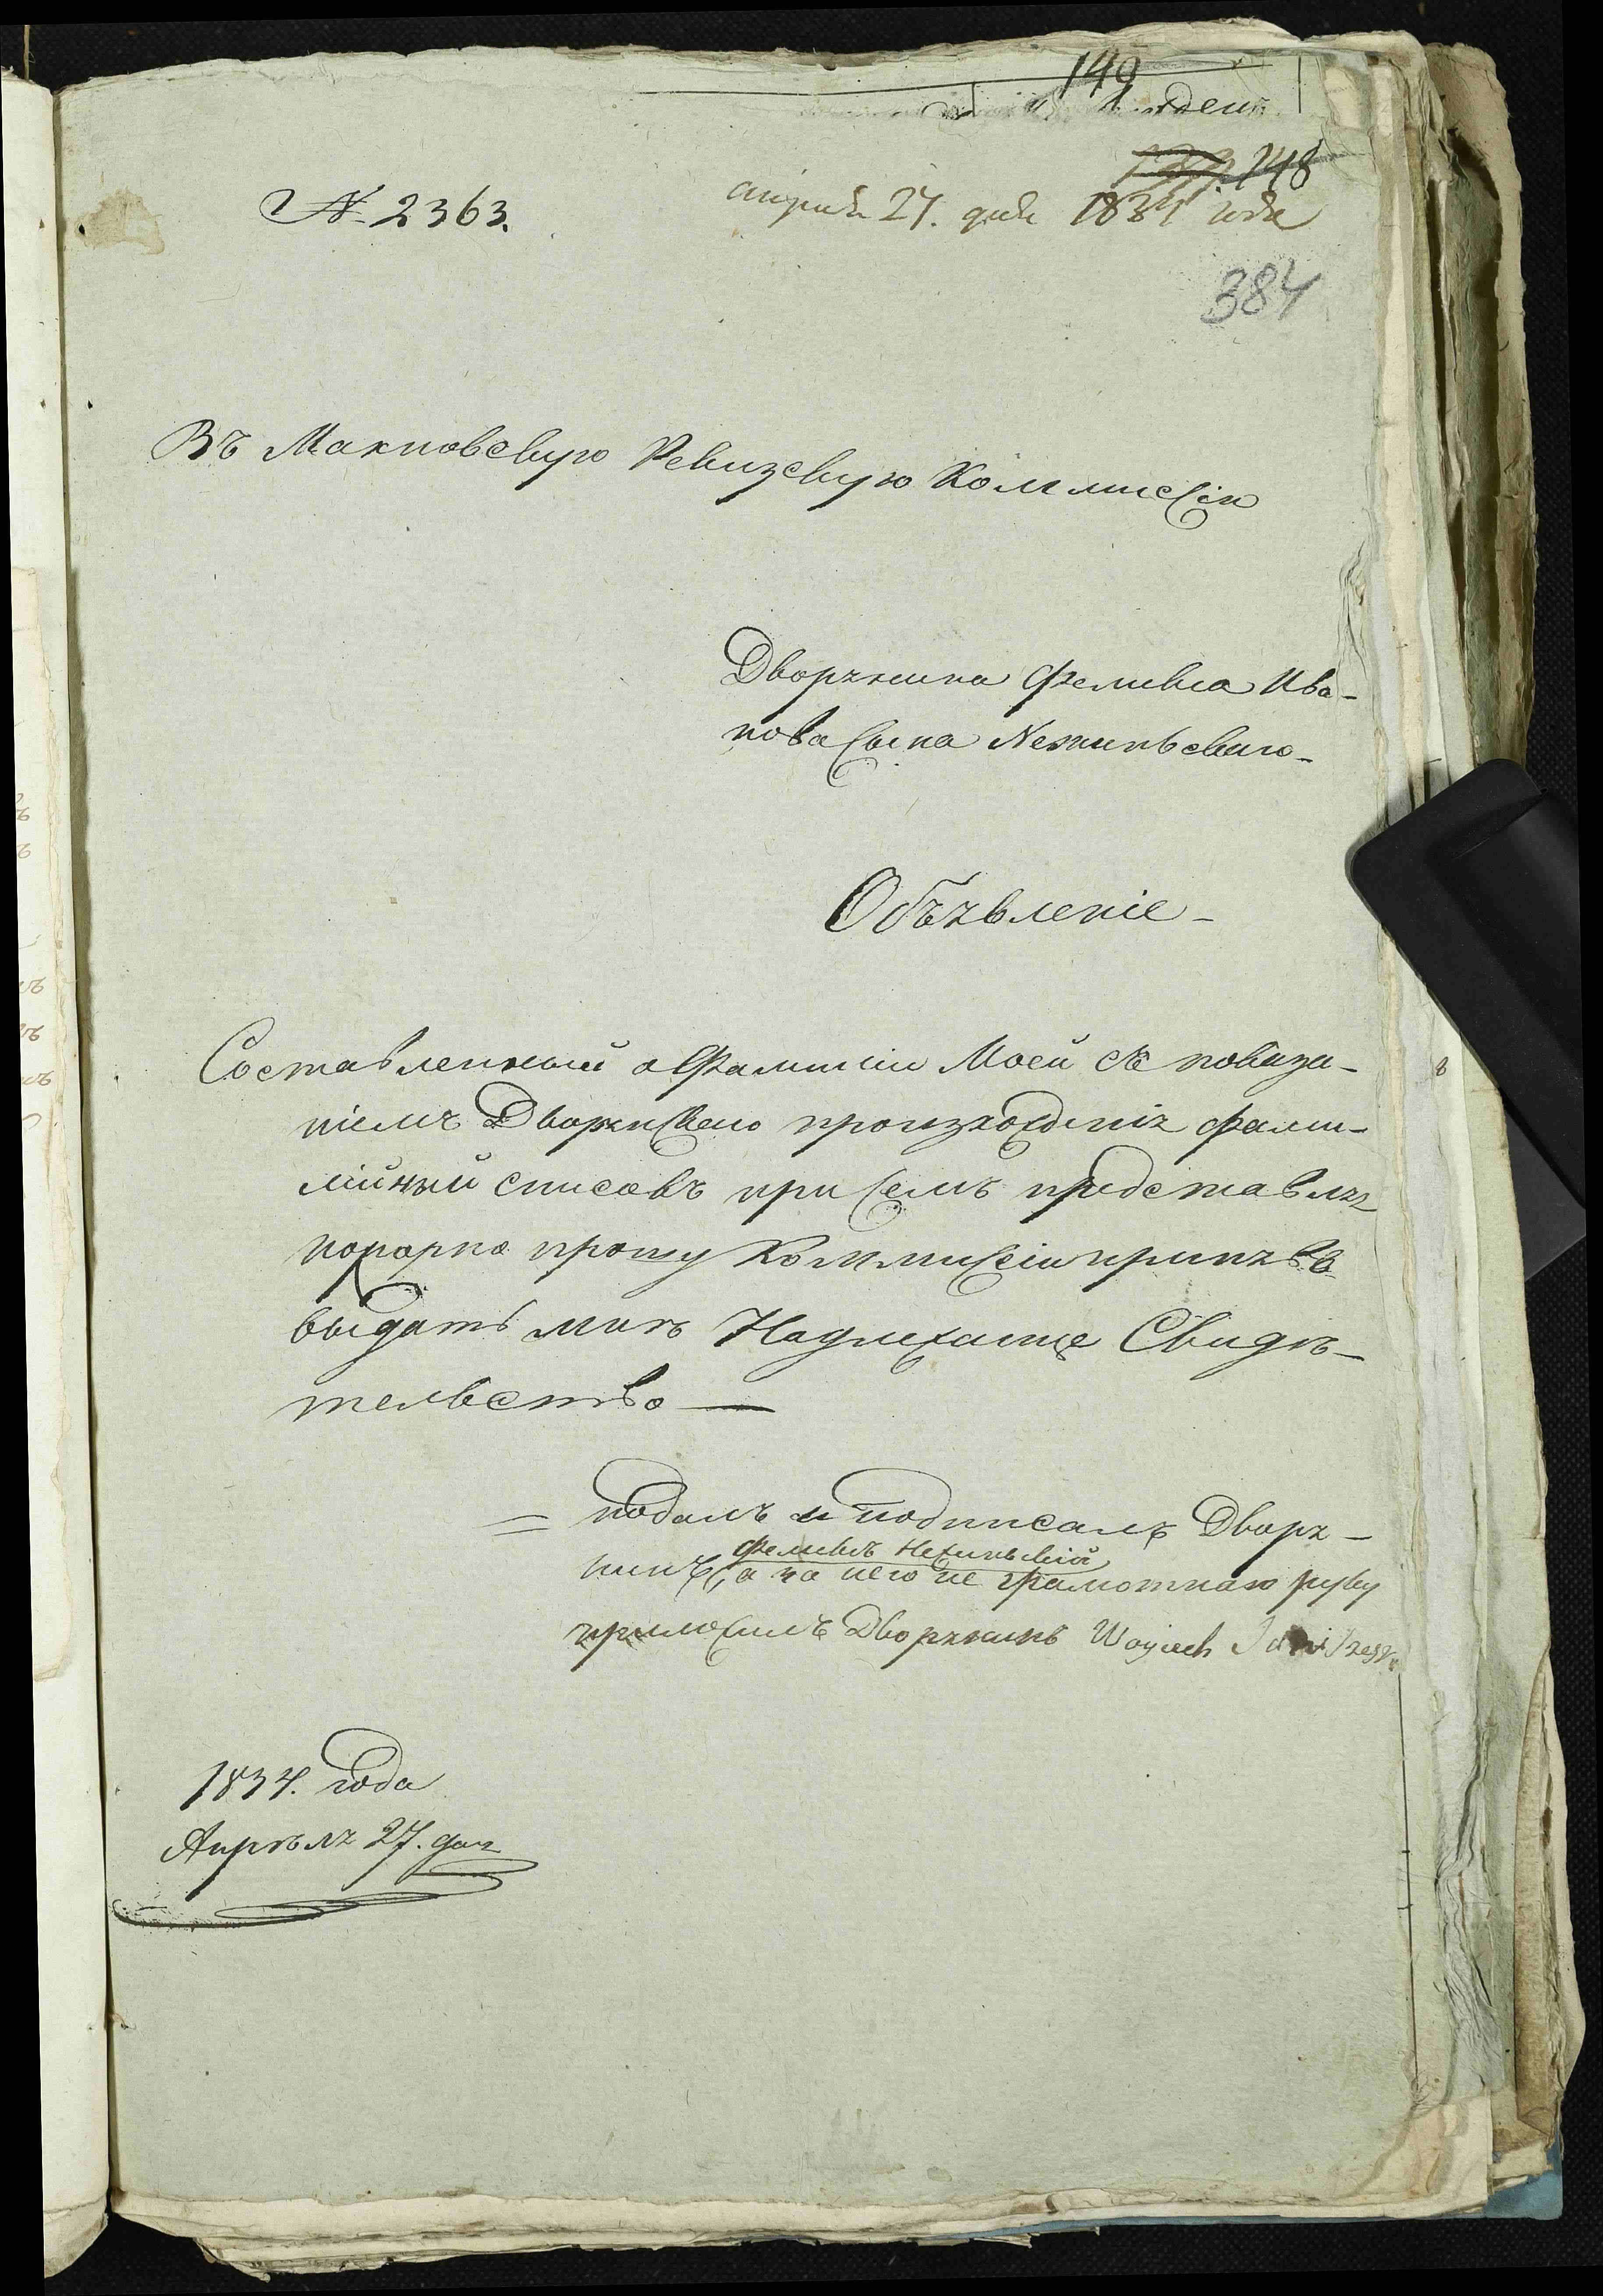 149
148
№ 2363.
апрѣля 27. дня 1834 года
384
Въ Махновскую Ревизскую Коммиссію
Дворянина Феликса Ива-
нова Сына Нежиньскаго-
Объявленіе-
Составленный о Фамиліи Моей съ показа-
ніемъ Дворянскаго произхожденія фами-
лійный списокъ при семъ представляя
покорно прошу Коммиссію принявъ
выдать мнѣ Надлежаще Свидѣ-
тельство —
= подалъ и подписалъ Дворя-
Феликсъ Нежиньскій
нинъ, а за него не грамотнаго руку
приложилъ Дворянинъ Woyciech
1834. года
Апрѣля 27. дня